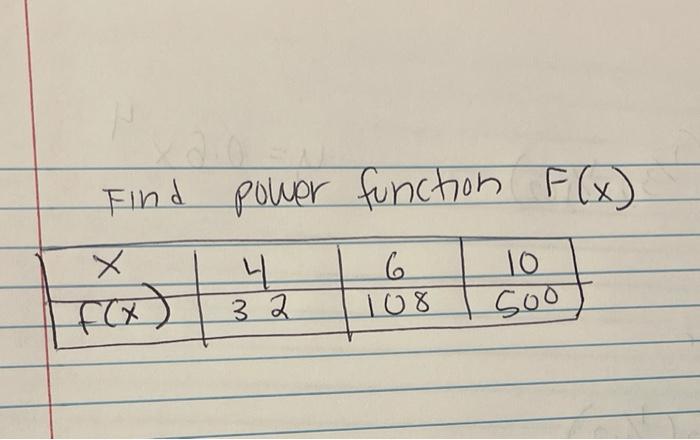 Find power function F(x)
x 4 6 10
f(x) 32 108 500